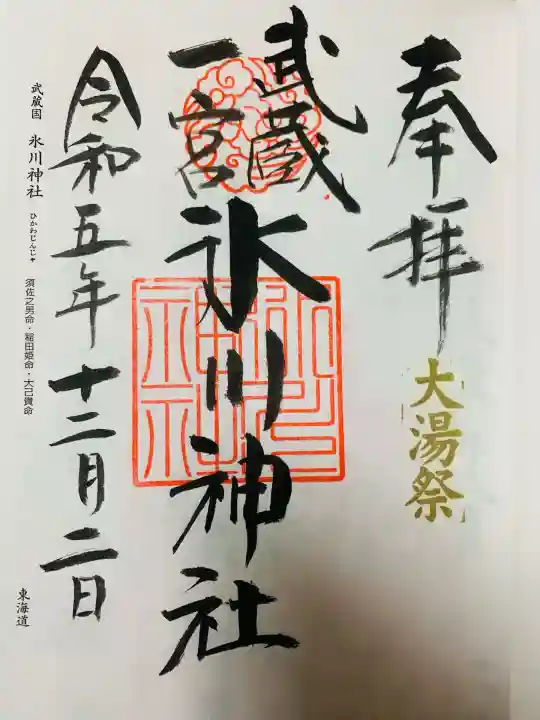 奉拝
大湯祭
武蔵
一宮
氷川神社
令和五年十二月二日
武蔵国 氷川神社 ひかわじんじゃ 須佐之男命・稲田姫命・大己貴命
東海道